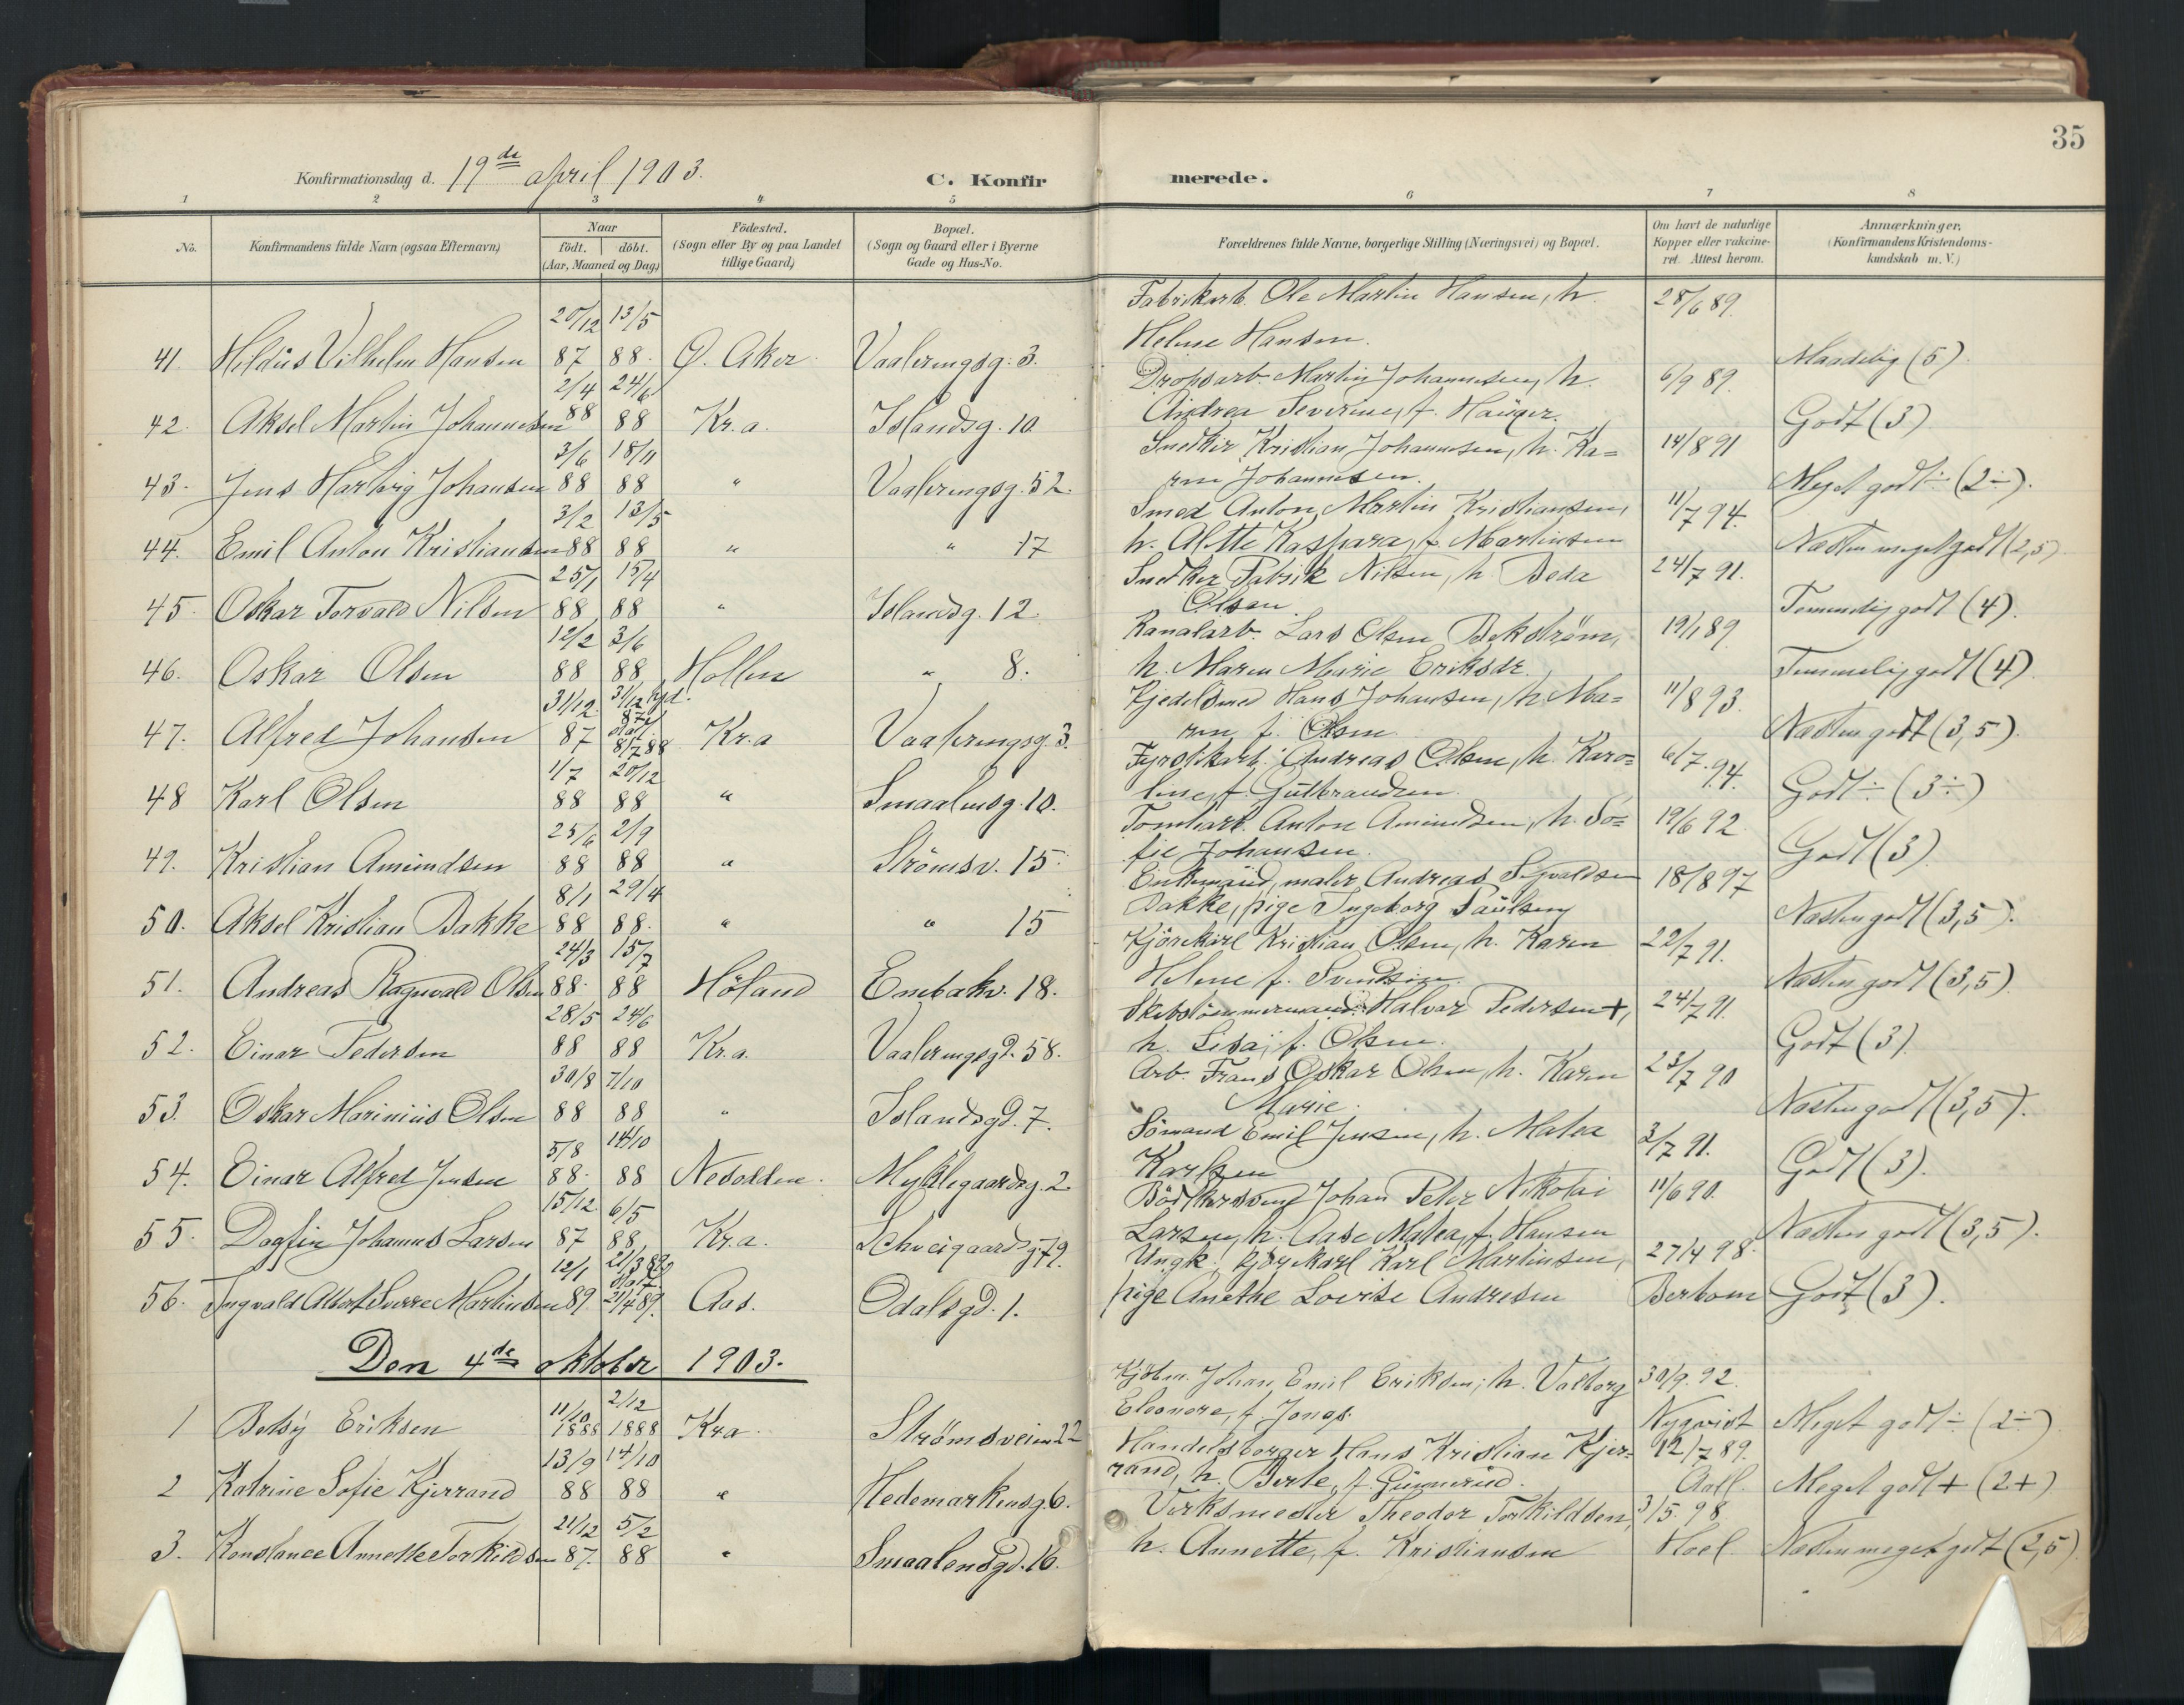 35
Konfirmationsdag d. 19de april 1903. C. Konfirmerede.
1 2 3 4 5 6 7 8
No. Konfirmandens fulde Navn (ogsaa Efternavn) Naar födt. döbt. (Aar, Maaned og Dag) Födested. (Sogn eller By og paa Landet tillige Gaard) Bopæl. (Sogn og Gaard eller i Byerne Gade og Hus-No. Forældrenes fulde Navne, borgerlige Stilling (Næringsvei) og Bopæl. Om havt de naturlige Kopper eller vakcineret. Attest herom. Anmærkninger. (Konfirmandens Kristendomskundskab m. V.)
41. Hildus Vilhelm Hansen 20/12 87 13/5 88. Ø. Aker Vaalerengsg. 3. Fabrikarb. Ole Martin Hansen, h. 28/6 89.
Heline Hansen. Maadelig (5).
42. Aksel Martin Johannesen 2/4 88 24/6 88 Kr.a. Islandsg. 10. Dropsarb. Martin Johannesen, h. 6/9 89.
Andrea Severine, f. Hauger. Godt (3)
43. Jens Hartvig Johansen 3/6 88 18/11 88 " Vaalerengsg. 52. Snedker Kristian Johannesen, h. Ka= 14/8 91
ren Johannesen. Meget godt ÷ (2÷).
44. Emil Anton Kristiansen 3/2 88 13/5 88 " " 17 Smed Anton Martin Kristiansen, 11/7 94.
h. Alette Kaspara, f. Martinsen Næsten meget godt (2,5)
45. Oskar Torvald Nilsen 25/1 88 15/4 88 " Islandsg. 12. Snedker Patrik Nilsen, h. Beda 24/7 91.
Olsen. Temmelig godt (4).
46. Oskar Olsen 12/2 88 3/6 88 Hollen " 8. Kanalarb. Lars Olsen Bekström, 19/1 89.
h. Maren Marie Eriksdr. Temmelig godt (4)
47. Alfred Johansen 31/12 87 31/12 hjd. 87 stad. 8/7 88 Kr.a Vaalerengsg. 3. Kjedelsmed Hans Johansen, h. Ma= 11/8 93.
ren, f. Olsen Næsten godt (3,5).
48 Karl Olsen 1/7 88 20/12 88 " Smaalensg. 10. Fyrstikarb. Andreas Olsen, h. Karo= 6/7. 94.
line, f. Gulbrandsen. Godt ÷ (3÷)
49. Kristian Amundsen 25/6 88 2/9 88 " Strömsv. 15. Tomtarb. Anton Amundsen, h. So= 19/6 92
fie Johansen. Godt (3)
50. Aksel Kristian Bakke 8/1 88 29/4 88. " " 15 Enkemand, maler Andreas Sigvaldsen 18/8 97
Bakke, pige Ingeborg Paulsen Næsten godt (3,5).
51. Andreas Ragnvald Olsen 24/3 88. 15/7 88 Höland Enebakv. 18. Kjörekarl Kristian Olsen, h. Karen 22/7 91.
Heline f. Svendsen. Næsten godt (3,5)
52. Einar Pedersen 28/5 88 24/6 88 Kr.a. Vaalerengsgd. 58. Skibstömmermand Halvar Pedersen +, 24/7 91.
h. Lisa, f. Olsen. Godt (3).
53. Oskar Marinius Olsen 30/8 88 7/10 88 " Islandsgd. 7. Arb. Frans Oskar Olsen, h. Karen 23/7 90
Marie. Næsten godt (3,5).
54. Einar Alfred Jensen 5/8 88. 14/10 88 Nesodden. Myklegaardsg. 2 Sömand Emil Jensen, h. Matea 3/7 91.
Karlsen Godt (3).
55. Dagfin Johannes Larsen 15/12 87 6/5 88 Kr.a. Schveigaardsg. 79. Bödkersvend Johan Peter Nikolai 11/6 90.
Larsen, h. Aase Matea, f. Hansen Næsten godt (3,5).
56. Ingvald Albert Sverre Martinsen 12/1 89 21/3 89 stad. 21/4 89. Aas. Odalsgd. 1. Ungk. kjörekarl Karl Martinsen, 27/4 98.
pige Anethe Lovise Andresen Berbom Godt (3).
Den 4de oktober 1903.
1 Betsy Eriksen 11/10 1888 2/12 1888 Kra. Strömsveien 22 Kjöbm. Johan Emil Eriksen, h. Valborg 30/9. 92.
Eleonore, f. Jonas. Nyqvist Meget godt ÷ (2÷)
2 Katrine Sofie Kjerrand 13/9 88 14/10 88 " Hedemarkensg. 6. Handelsborger Hans Kristian Kjer= 12/7 89.
rand, h. Berte, f. Gunnerud. Aall. Meget godt + (2+)
3. Konstance Annette Torkildsen 21/12 87. 5/2 88 " Smaalensgd. 16. Verksmester Theodor Torkildsen, 3/5. 98
h. Annette, f. Kristiansen Hoel. Næsten meget godt (2,5)